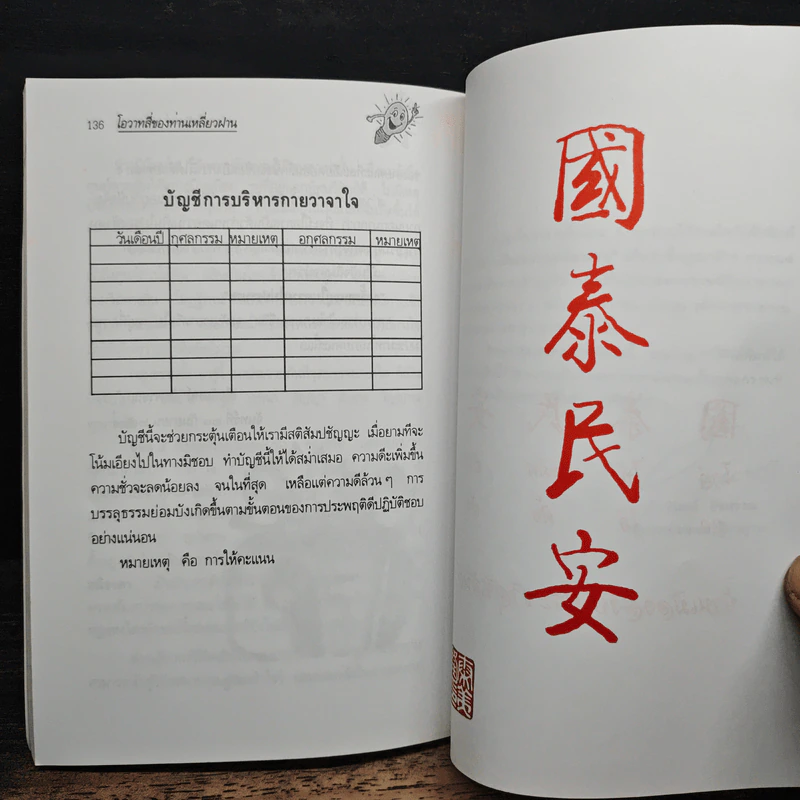 136 โอวาทสี่ของท่านเหลี่ยวฝาน
บัญชีการบริหารกายวาจาใจ
วันเดือนปี กุศลกรรม หมายเหตุ อกุศลกรรม หมายเหตุ
บัญชีนี้จะช่วยกระตุ้นเตือนให้เรามีสติสัมปชัญญะ เมื่อยามที่จะ
โน้มเอียงไปในทางมิชอบ ทำบัญชีนี้ให้ได้สม่ำเสมอ ความดีจะเพิ่มขึ้น
ความชั่วจะลดน้อยลง จนในที่สุด เหลือแต่ความดีล้วนๆ การ
บรรลุธรรมย่อมบังเกิดขึ้นตามขั้นตอนของการประพฤติดีปฏิบัติชอบ
อย่างแน่นอน
หมายเหตุ คือ การให้คะแนน
國
泰
民
安